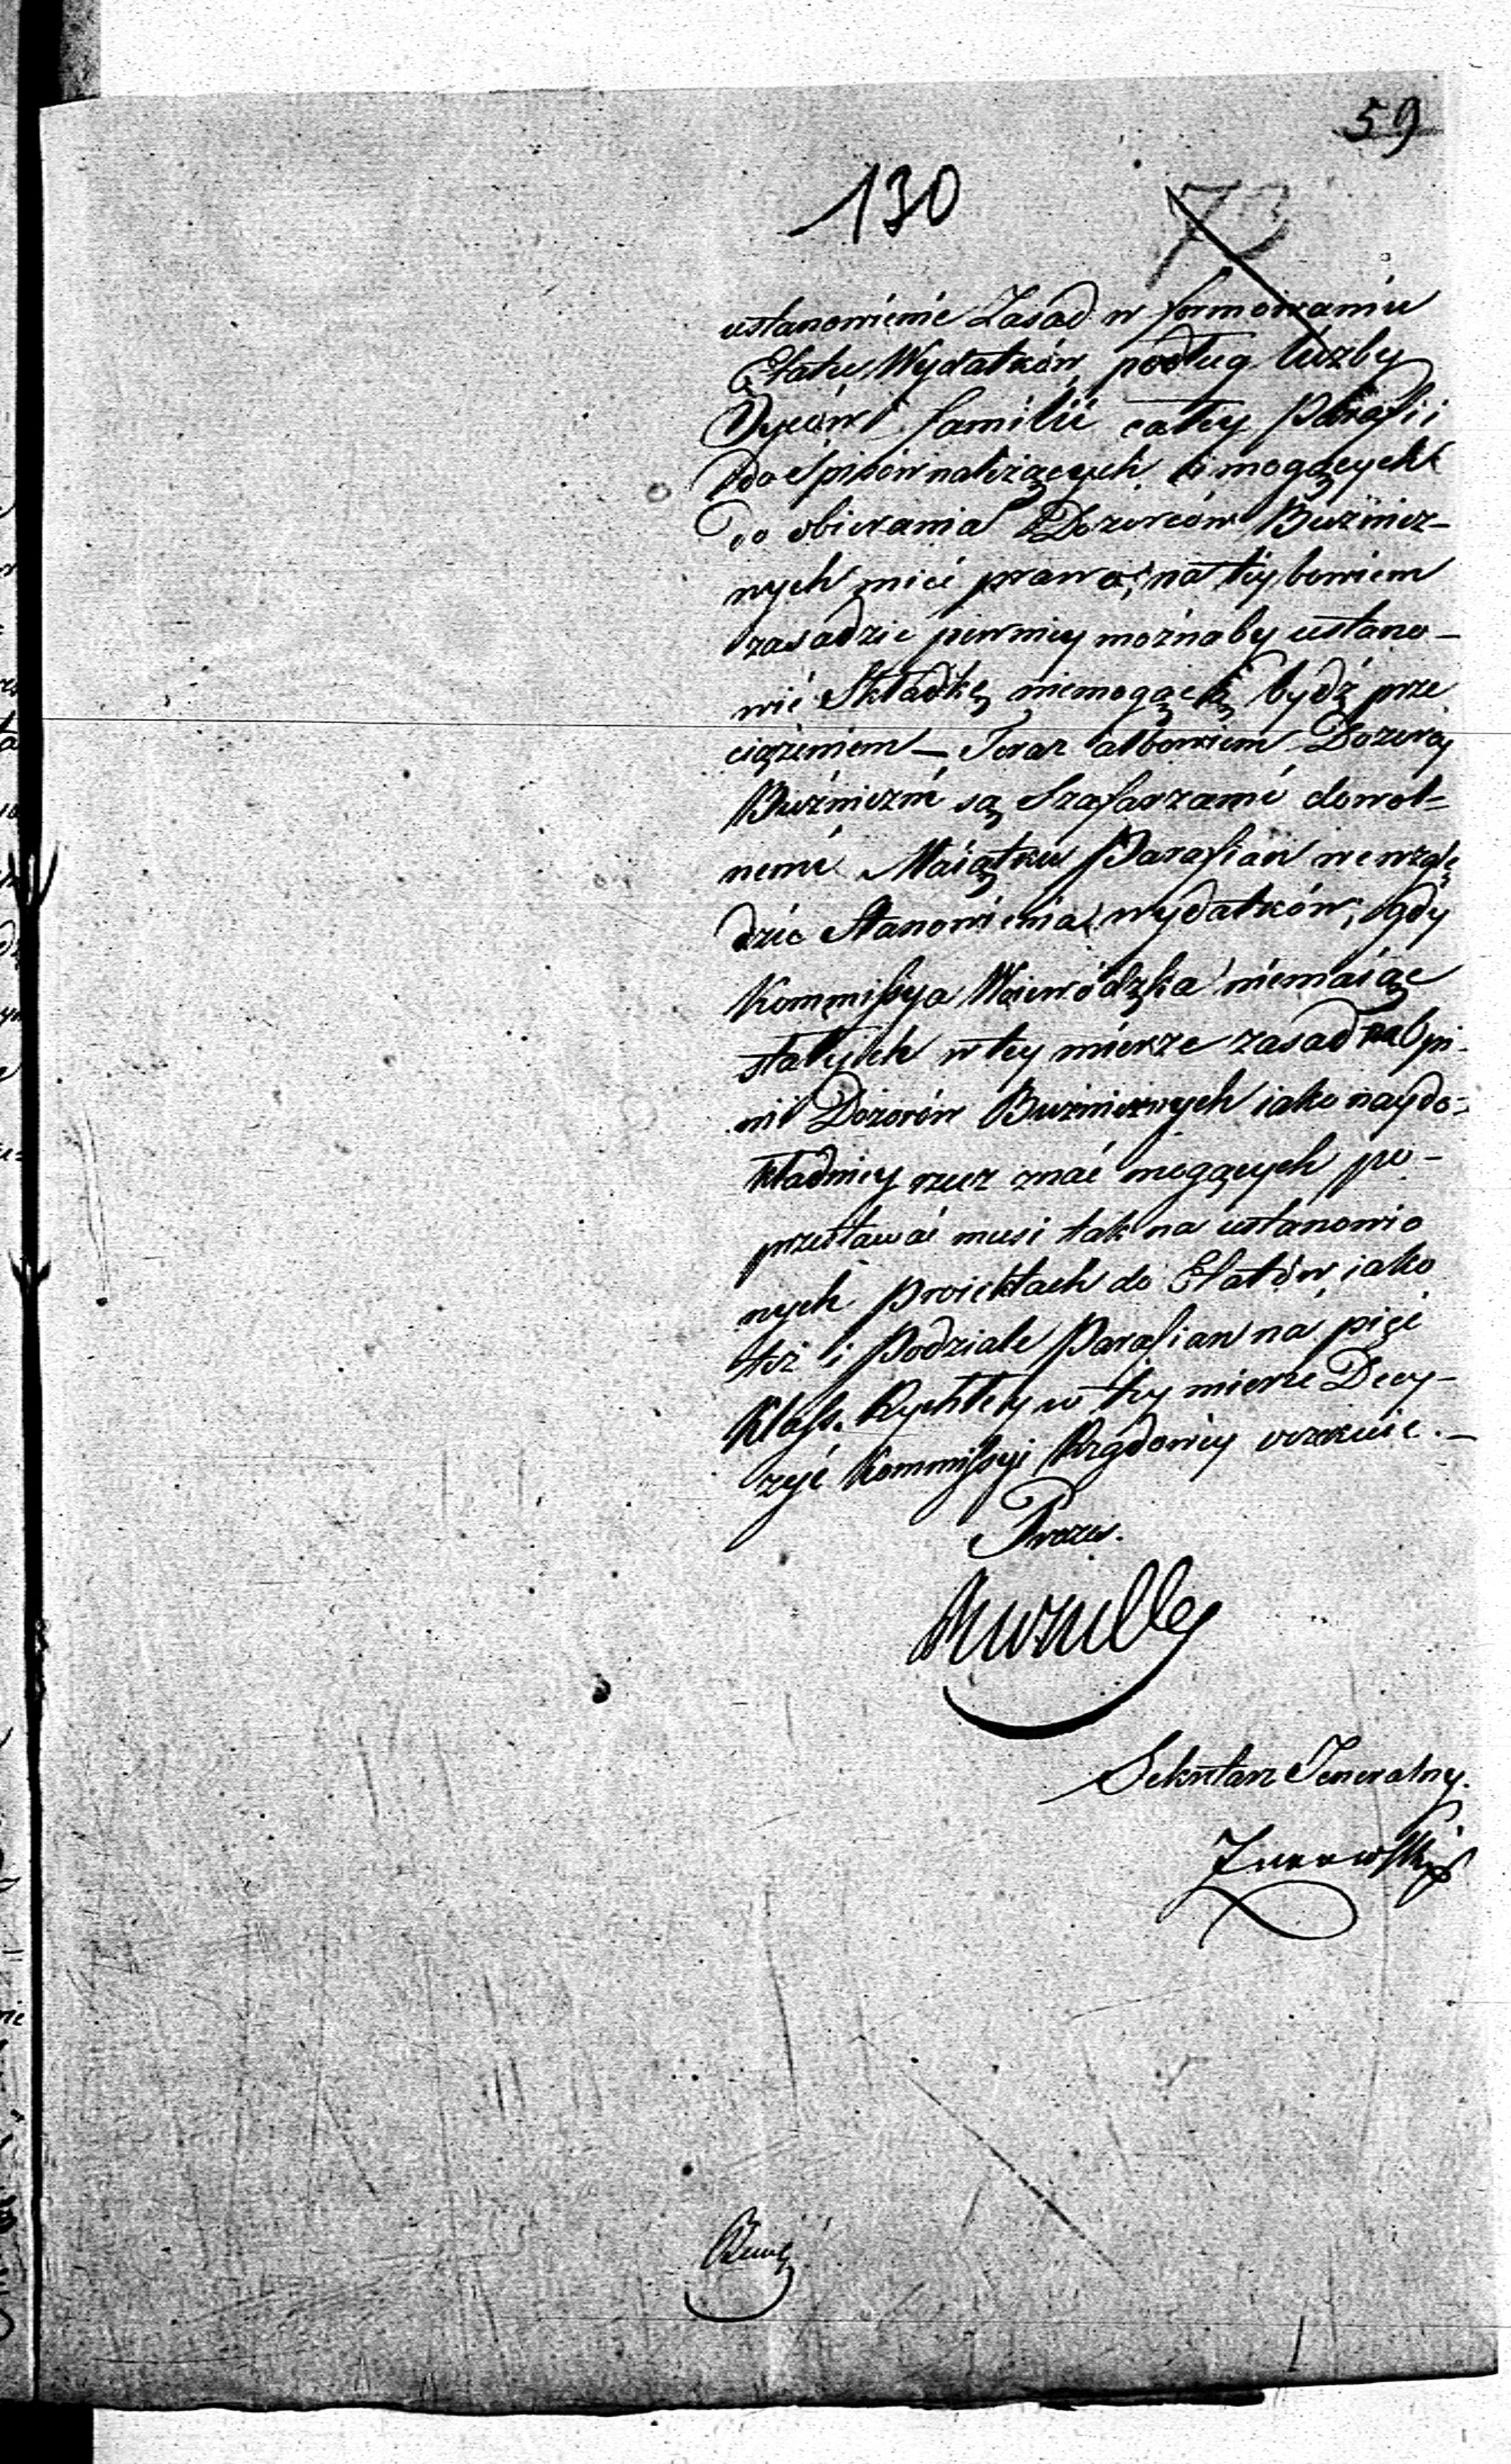 59
130
73
ustanowienie Zasad w formowaniu
Etatu Wydatków, podług liczby
Oyców familii całey Parafii
do Spisów należących, i mogących
do obierania Dozorców Bużnicz-
nych mieć prawo; na tey bowiem
zasadzie pewniey możnaby ustano-
wić Składkę niemogącą bydź prze
ciążeniem — Teraz albowiem Dozory
Bużniczne są Szafarzami dowol-
nemi Maiątku Parafian we wzglę
dzie Stanowienia wydatków; gdy
Kommissya Woiewódzka niemaiąc
stałych w tey mierze zasad na Opi-
nii Dozorów Bużnicznych iako naydo-
kładniey rzecz znać mogących po-
przestawać musi tak na ustanowio
nych proiektach do Etatów, iako
też i Podziale Parafian na pięć
Klass. Rychłey w tey mierze Decy-
zyi Kommissyi Rządowey oczekuie. —
Prezes.
Sekretarz Jeneralny.
Żurawski